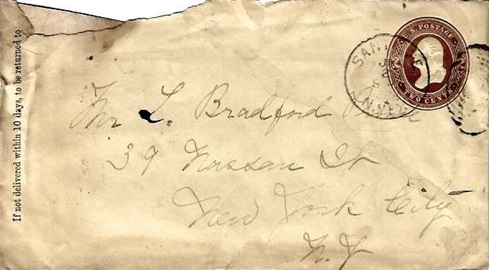 If not delivered within 10 days, to be returned to
U.S. POSTAGE
TWO CENTS
SANTA
Mr L. Bradford
39 Nassau St
New York City
N.Y